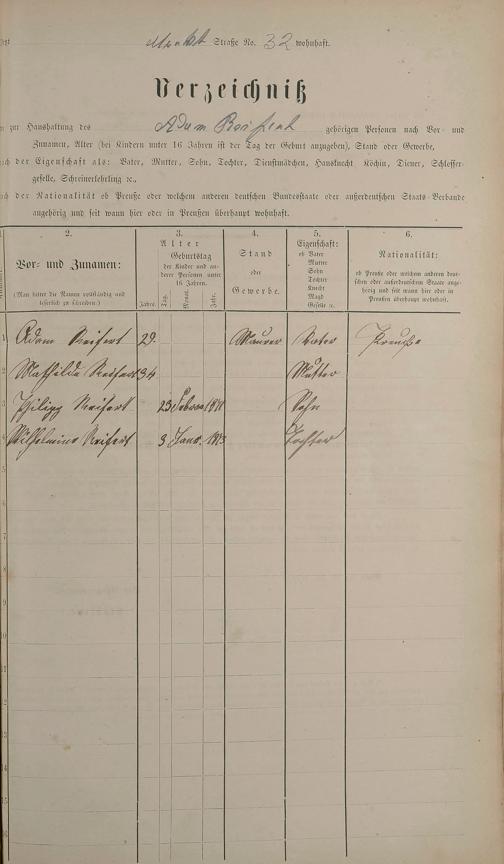 Markt Straße No. 32 wohnhaft.
Verzeichniß
zur Haushaltung des Adam Reifert gehörigen Personen nach Vor- und
Zunamen, Alter (bei Kindern unter 16 Jahren ist der Tag der Geburt anzugeben), Stand oder Gewerbe,
der Eigenschaft als: Vater, Mutter, Sohn, Tochter, Dienstmädchen, Hausknecht Köchin, Diener, Schlosser-
geselle, Schreinerlehrling ꝛc.,
der Nationalität ob Preuße oder welchem anderen deutschen Bundesstaate oder außerdeutschen Staats-Verbande
angehörig und seit wann hier oder in Preußen überhaupt wohnhaft.
2.
Vor- und Zunamen:
(Man bittet die Namen vollständig und
leserlich zu schreiben.)
3.
Alter
Geburtstag
der Kinder und an-
derer Personen unter
16 Jahren.
Jahre.
Tag.
Monat.
Jahr.
4.
Stand
oder
Gewerbe.
5.
Eigenschaft:
ob Vater
Mutter
Sohn
Tochter
Knecht
Magd
Geselle ꝛc.
6.
Nationalität:
ob Preuße oder welchem anderen deut-
schen oder außerdeutschen Staate ange-
hörig und seit wann hier oder in
Preußen überhaupt wohnhaft.
1 Adam Reifert 29. Maurer Vater Preuße
2 Mathilde Reifert 34 Mutter
3 Philipp Reifert 23 Februar Sohn
4 Wilhelmine Reifert 3 Janr. 1873 Tochter
5
6
7
8
9
10
11
12
13
14
15
16